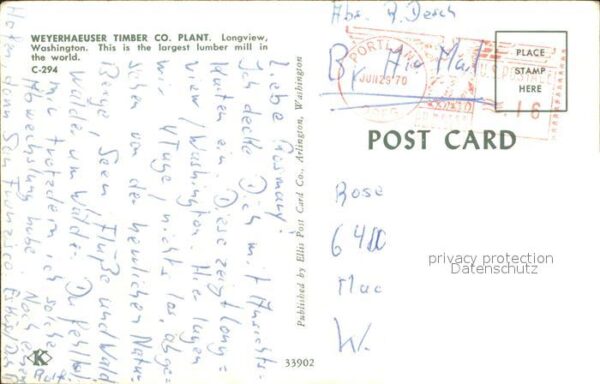 WEYERHAEUSER TIMBER CO. PLANT. Longview,
Washington. This is the largest lumber mill in
the world.
C-294
Abs. R. Desch
By Air Mail
PORTLAND
JUN 29 70
U.S. POSTAGE
.16
PLACE
STAMP
HERE
POST CARD
Liebe Rosmarie!
Ich decke Dich mit Ansichts-
karten ein. Diese zeigt Long-
view/Washington. Hier lagen
wir 4 Tage, nichts los, abge-
sehen von der herrlichen Natur
Berge, Seen, Flüße und Wald
Wälder, um Wälder. Du fehlst
mir trotzdem ich solche
Abwechslung habe. Noch einen
Hafen dann San Franzisco. Es
Rolf
Published by Ellis Post Card Co., Arlington, Washington
Rose
64
W.
privacy protection
Datenschutz
K
33902